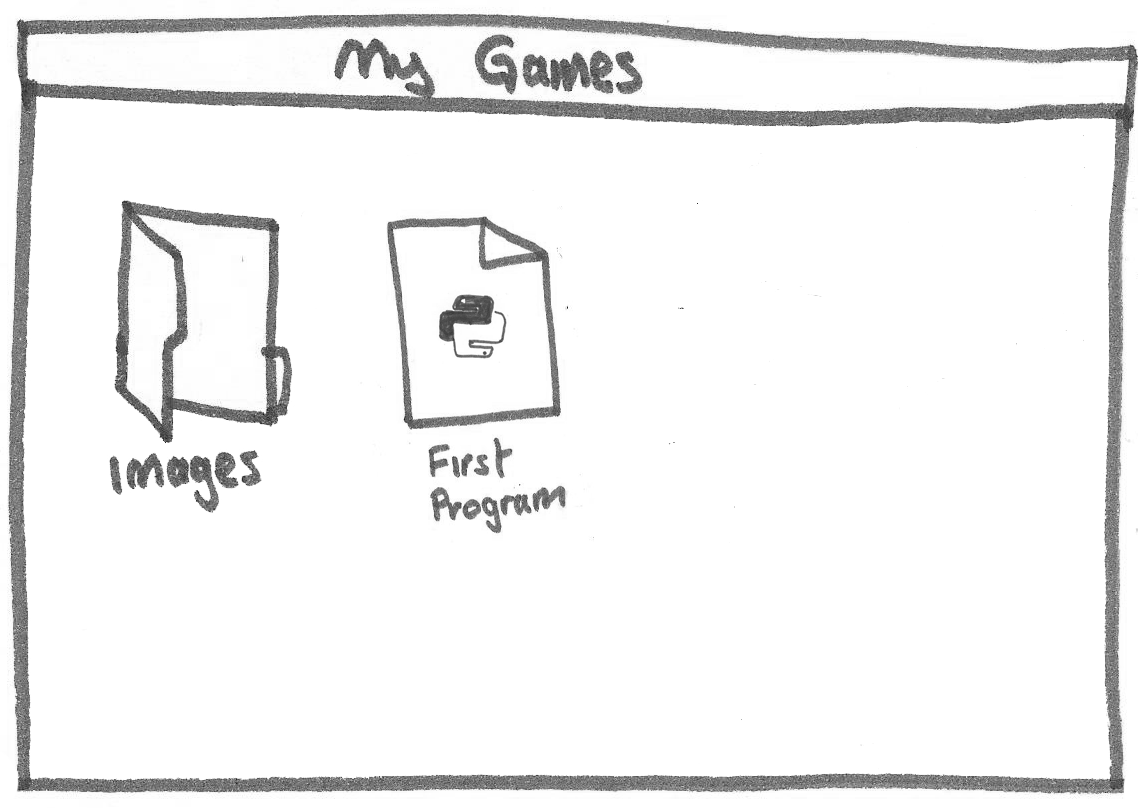 My Games
Images
First
Program